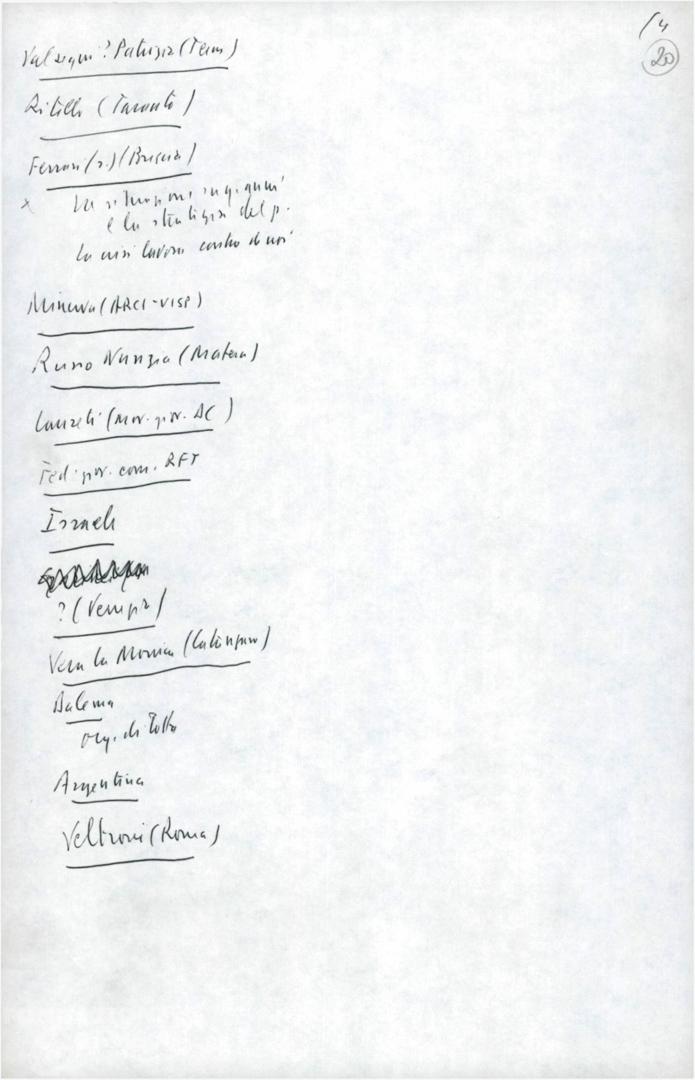 14
20
? Patrizia (Terni)
Ritelli (Taranto)
Ferrari (r.) (Brescia)
x La situazione
e la strategia del p.
La crisi lavora contro di noi
Minerva (ARCI-UISP)
Russo Nunzia (Matera)
(Mov. giov. AC)
Fed. giov. com. RFT
Israele
? (Venezia)
Vera La Monica (Catanzaro)
Dalema
org. di lotta
Argentina
Veltroni (Roma)